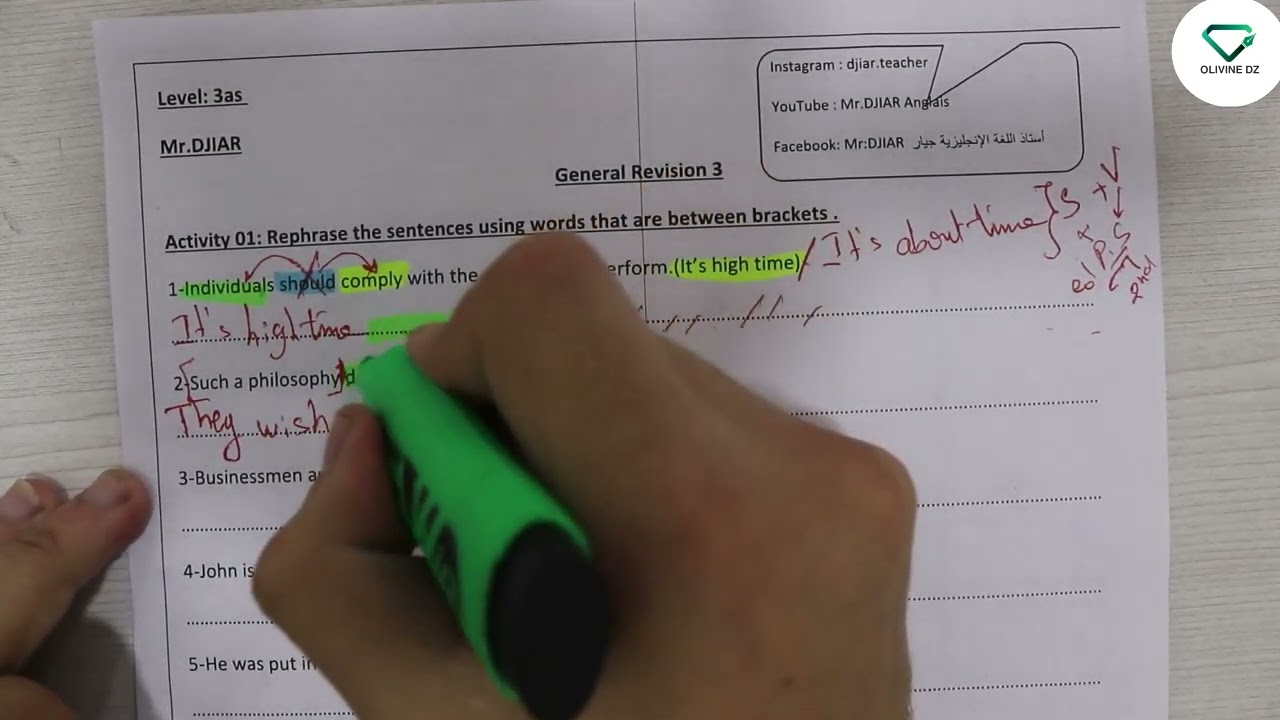 OLIVINE DZ
Level: 3as
Mr.DJIAR
Instagram : djiar.teacher
YouTube : Mr.DJIAR Anglais
Facebook: Mr:DJIAR أستاذ اللغة الإنجليزية جيار
General Revision 3
Activity 01: Rephrase the sentences using words that are between brackets .
1-Individuals should comply with the erform.(It's high time) / It's about time } S + V
P.S
ed 2nd
It's high time
2-Such a philosophy d
They wish
3-Businessmen a
4-John is
5-He was put in